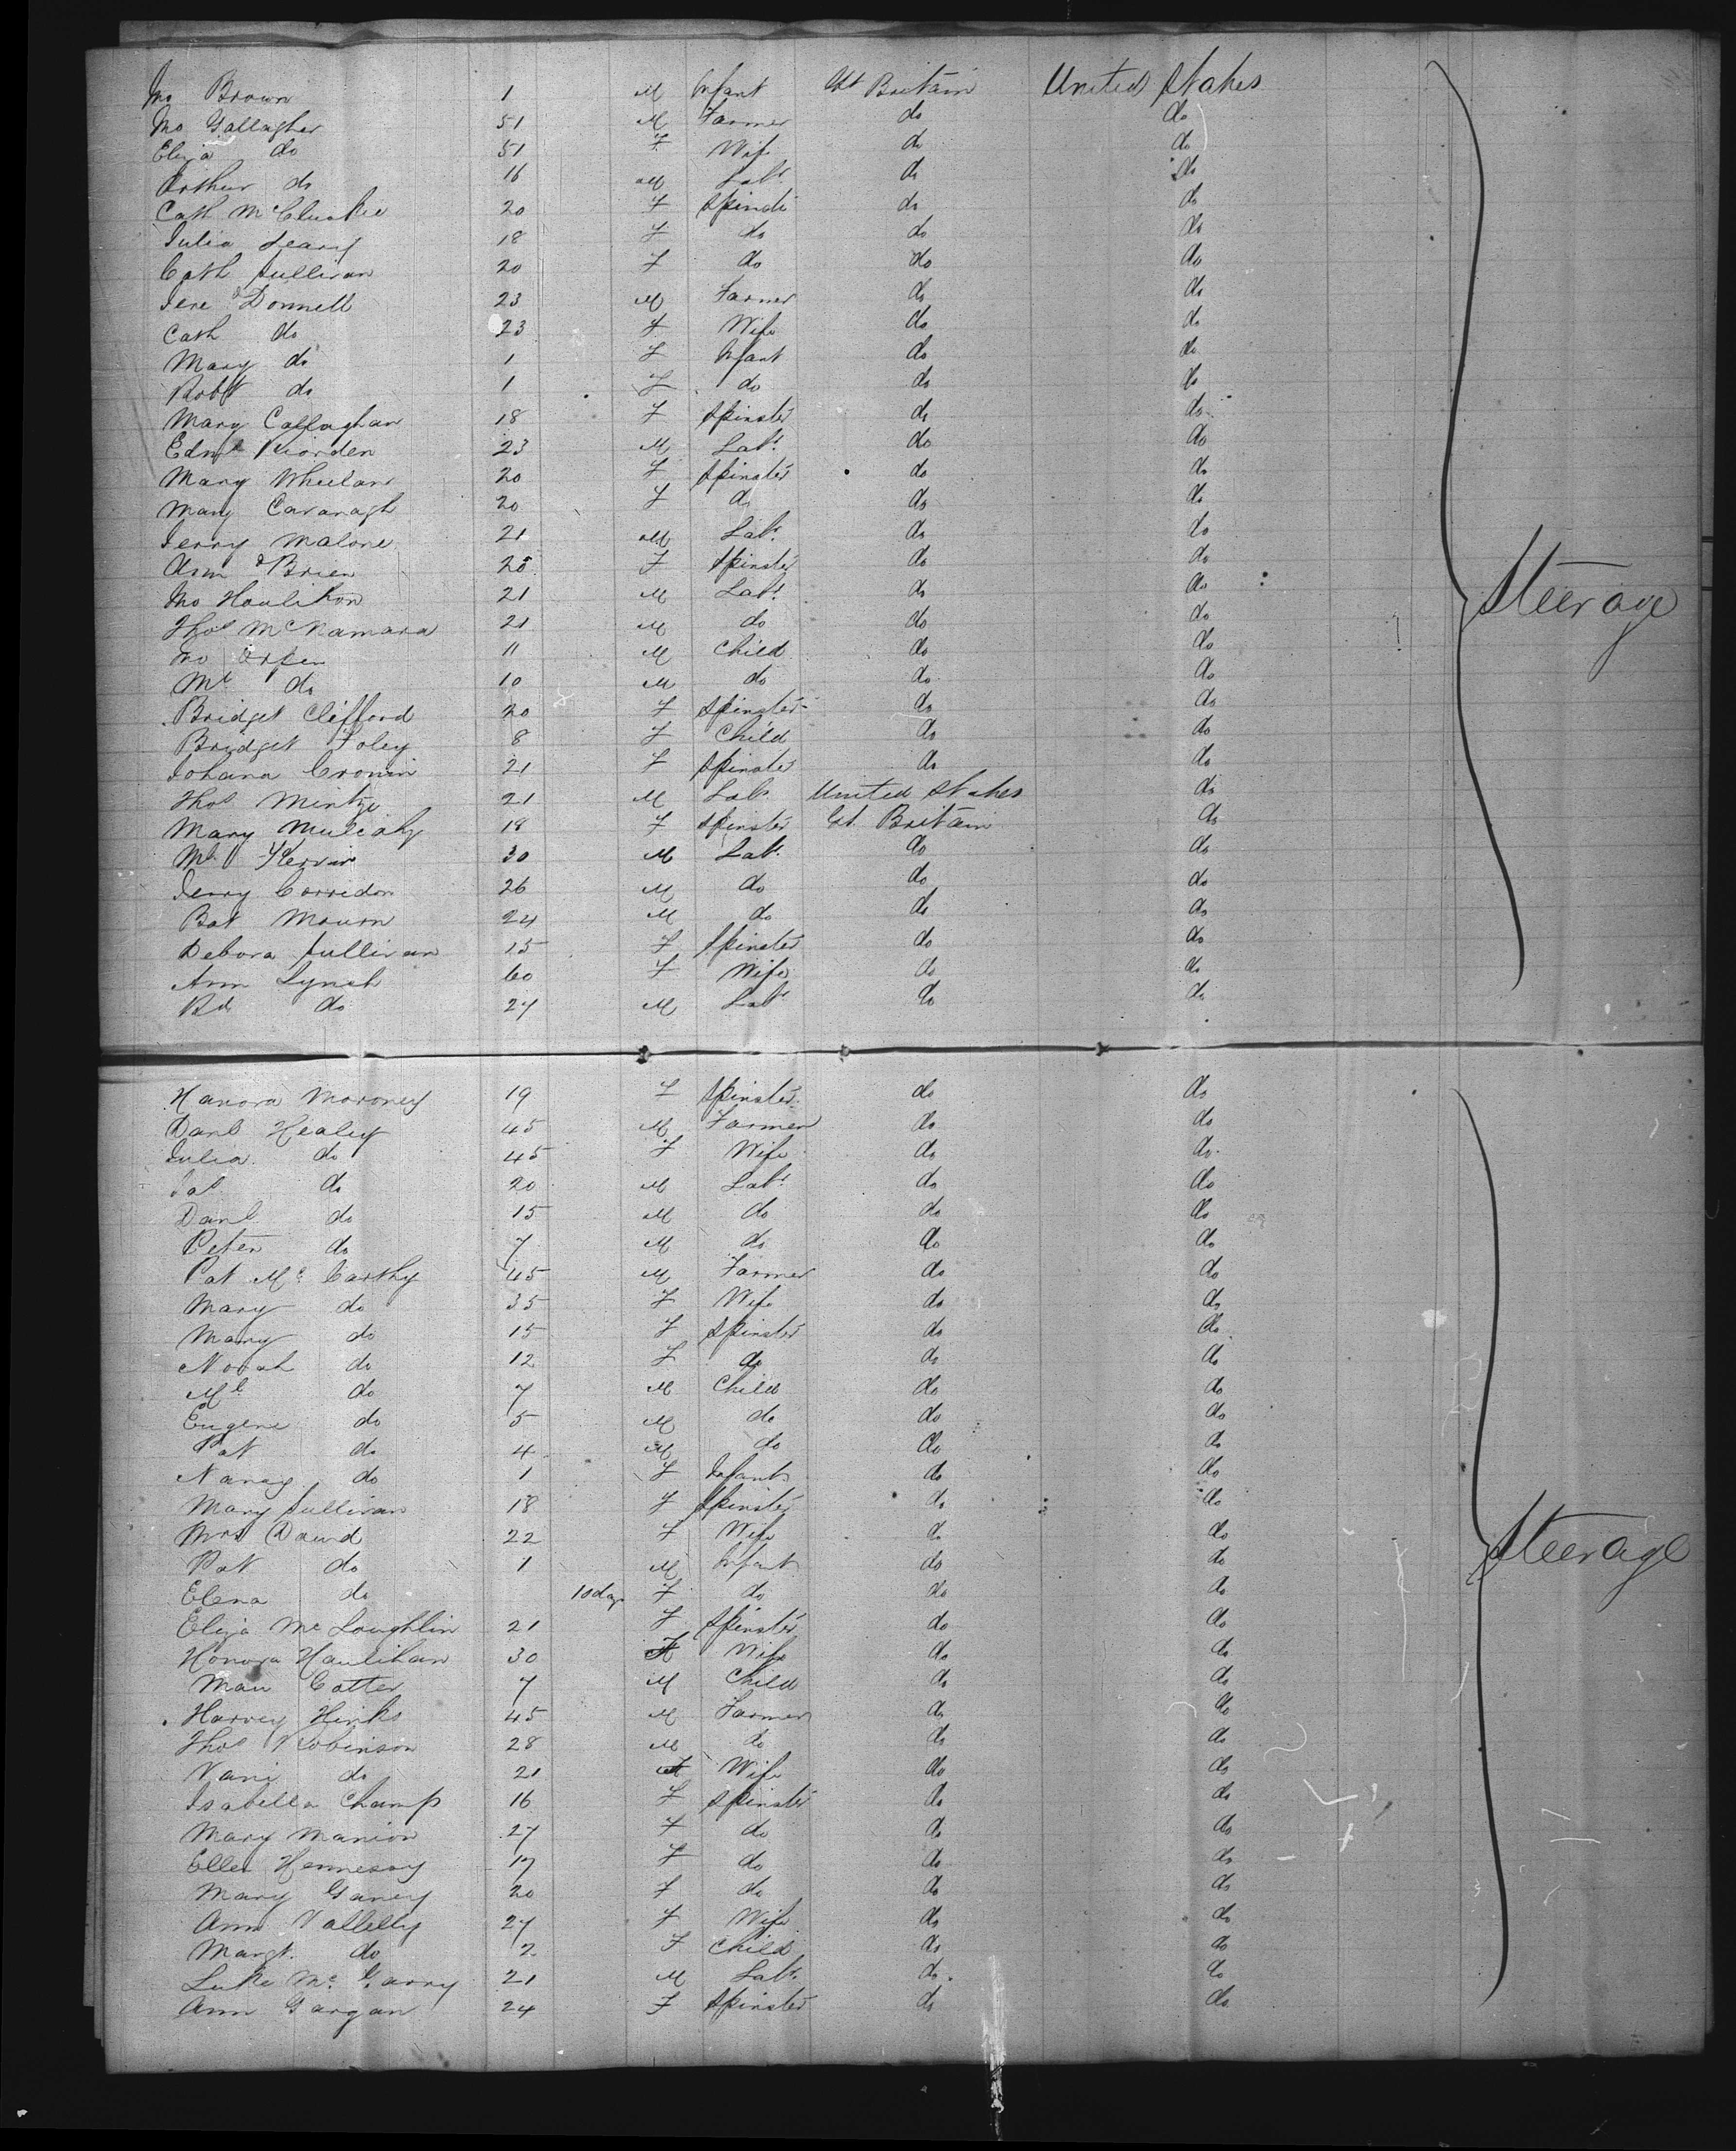 Jno Brown 1 M Infant Gt Britain United States
Jno Gallagher 51 M Farmer do do
Eliza do 51 F Wife do do
Arthur do 16 M Labr do do
Cath McCluskie 20 F Spinstr do do
Julia Leary 18 F do do do
Cath Sullivan 20 F do do do
Jere O'Donnell 23 M Farmer do do
Cath do 23 F Wife do do
Mary do 1 F Infant do do
Robt do 1 F do do do
Mary Callaghan 18 F Spinster do do
Edmd Riorden 23 M Labr do do
Mary Whelan 20 F Spinster do do
Mary Cavanagh 20 F do do do
Jerry Malone 21 M Labr do do
Ann O'Brien 25 F Spinster do do
Steerage
Jno Houlihan 21 M Labr do do
Thos McNamara 21 M do do do
Jno Orpen 11 M Child do do
Ml do 10 M do do do
Bridget Clifford 20 F Spinster do do
Bridget Foley 8 F Child do do
Johana Cronin 21 F Spinster do do
Thos Mintze 21 M Labr United States do
Mary Mulcahy 18 F Spinster Gt. Britain do
Ml Kervin 30 M Labr do do
Jerry Corridon 26 M do do do
Bat 24 M do do do
Debora Sullivan 15 F Spinster do do
Ann Lynch 60 F Wife do do
Rd do 27 M Labr do do
Hanora Moroney 19 F Spinster do do
Danl Healey 45 M Farmer do do
Julia do 45 F Wife do do
Jas do 20 M Labr do do
Danl do 15 M do do do
Peter do 7 M do do do
Pat McCarthy 45 M Farmer do do
Mary do 35 F Wife do do
Mary do 15 F Spinster do do
Norah do 12 F do do do
Ml do 7 M Child do do
Eugene do 5 M do do do
Pat do 4 M do do do
Nancy do 1 F Infant do do
Mary Sullivan 18 F Spinster do do
Mrs David 22 F Wife do do
Steerage
Pat do 1 M Infant do do
Elena do 10 days F do do do
Eliza McLoughlin 21 F Spinster do do
Honora Haulihan 30 F Wife do do
Mau Cotter 7 M Child do do
Harvey Hinks 45 M Farmer do do
Thos Robinson 28 M do do do
do 21 F Wife do do
Isabella Champ 16 F Spinster do do
Mary Manion 27 F do do do
Ellen Hennessy 17 F do do do
Mary Ganey 20 F do do do
Ann Vallelly 27 F Wife do do
Margt. do 2 F Child do do
Luke McGarry 21 M Labr do do
Ann Gargan 24 F Spinster do do